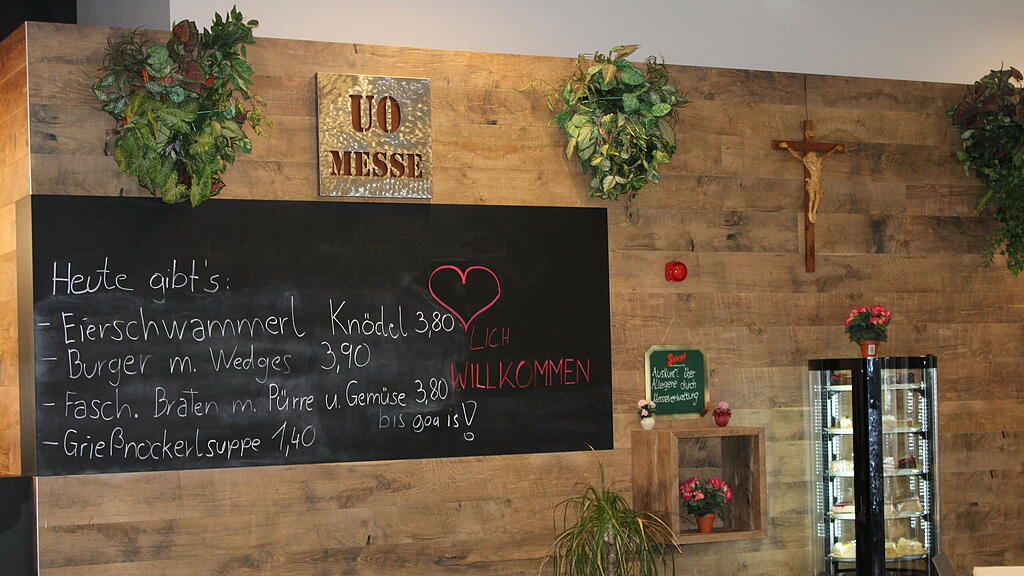 UO
MESSE
Heute gibt's:
- Eierschwammerl Knödel 3,80
- Burger m. Wedges 3,90
- Fasch. Braten m. Pürre u. Gemüse 3,80
bis goa is!
- Grießnockerlsuppe 1,40
LICH
WILLKOMMEN
Stiegl
Auskunft über
Allergene durch
Messeverwaltung